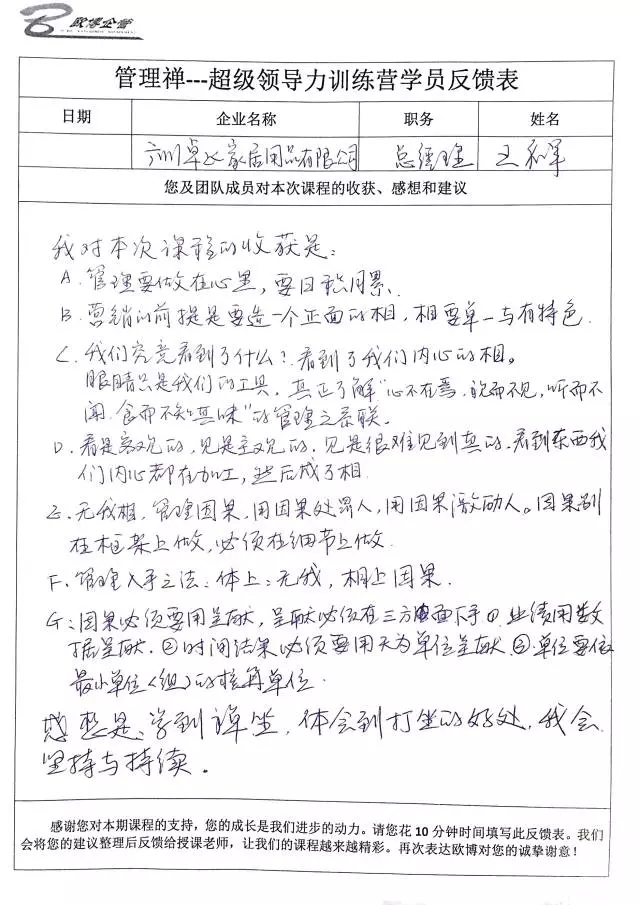 欧博企管
管理禅---超级领导力训练营学员反馈表
日期 企业名称 职务 姓名
广州卓义家居用品有限公司 总经理 王和军
您及团队成员对本次课程的收获、感想和建议
我对本次课程的收获是:
A. 管理要做在心里,要日积月累、
B. 营销的前提是要造一个正面的相,相要单一与有特色.
C. 我们究竟看到了什么?看到了我们内心的相。
眼睛只是我们的工具,真正了解“心不在焉,视而不见,听而不
闻,食而不知其味”的管理之系联。
D. 看是客观的,见是主观的.见是很难见到真的.看到东西我
们内心都在加工,然后成了相.
E. 无我相,管理因果,用因果处罚人,用因果激励人。因果别
在框架上做,必须在细节上做.
F. 管理入手之法:体上:无我,相上因果.
G:因果必须要用呈献,呈献必须在三方面下手①业绩用数
据呈献.②时间结果必须要用天为单位呈献③单位要做
最小单位(组)的核算单位.
感想是,学到禅坐,体会到打坐的好处,我会
坚持与持续。
感谢您对本期课程的支持,您的成长是我们进步的动力。请您花 10 分钟时间填写此反馈表。我们
会将您的建议整理后反馈给授课老师,让我们的课程越来越精彩。再次表达欧博对您的诚挚谢意!